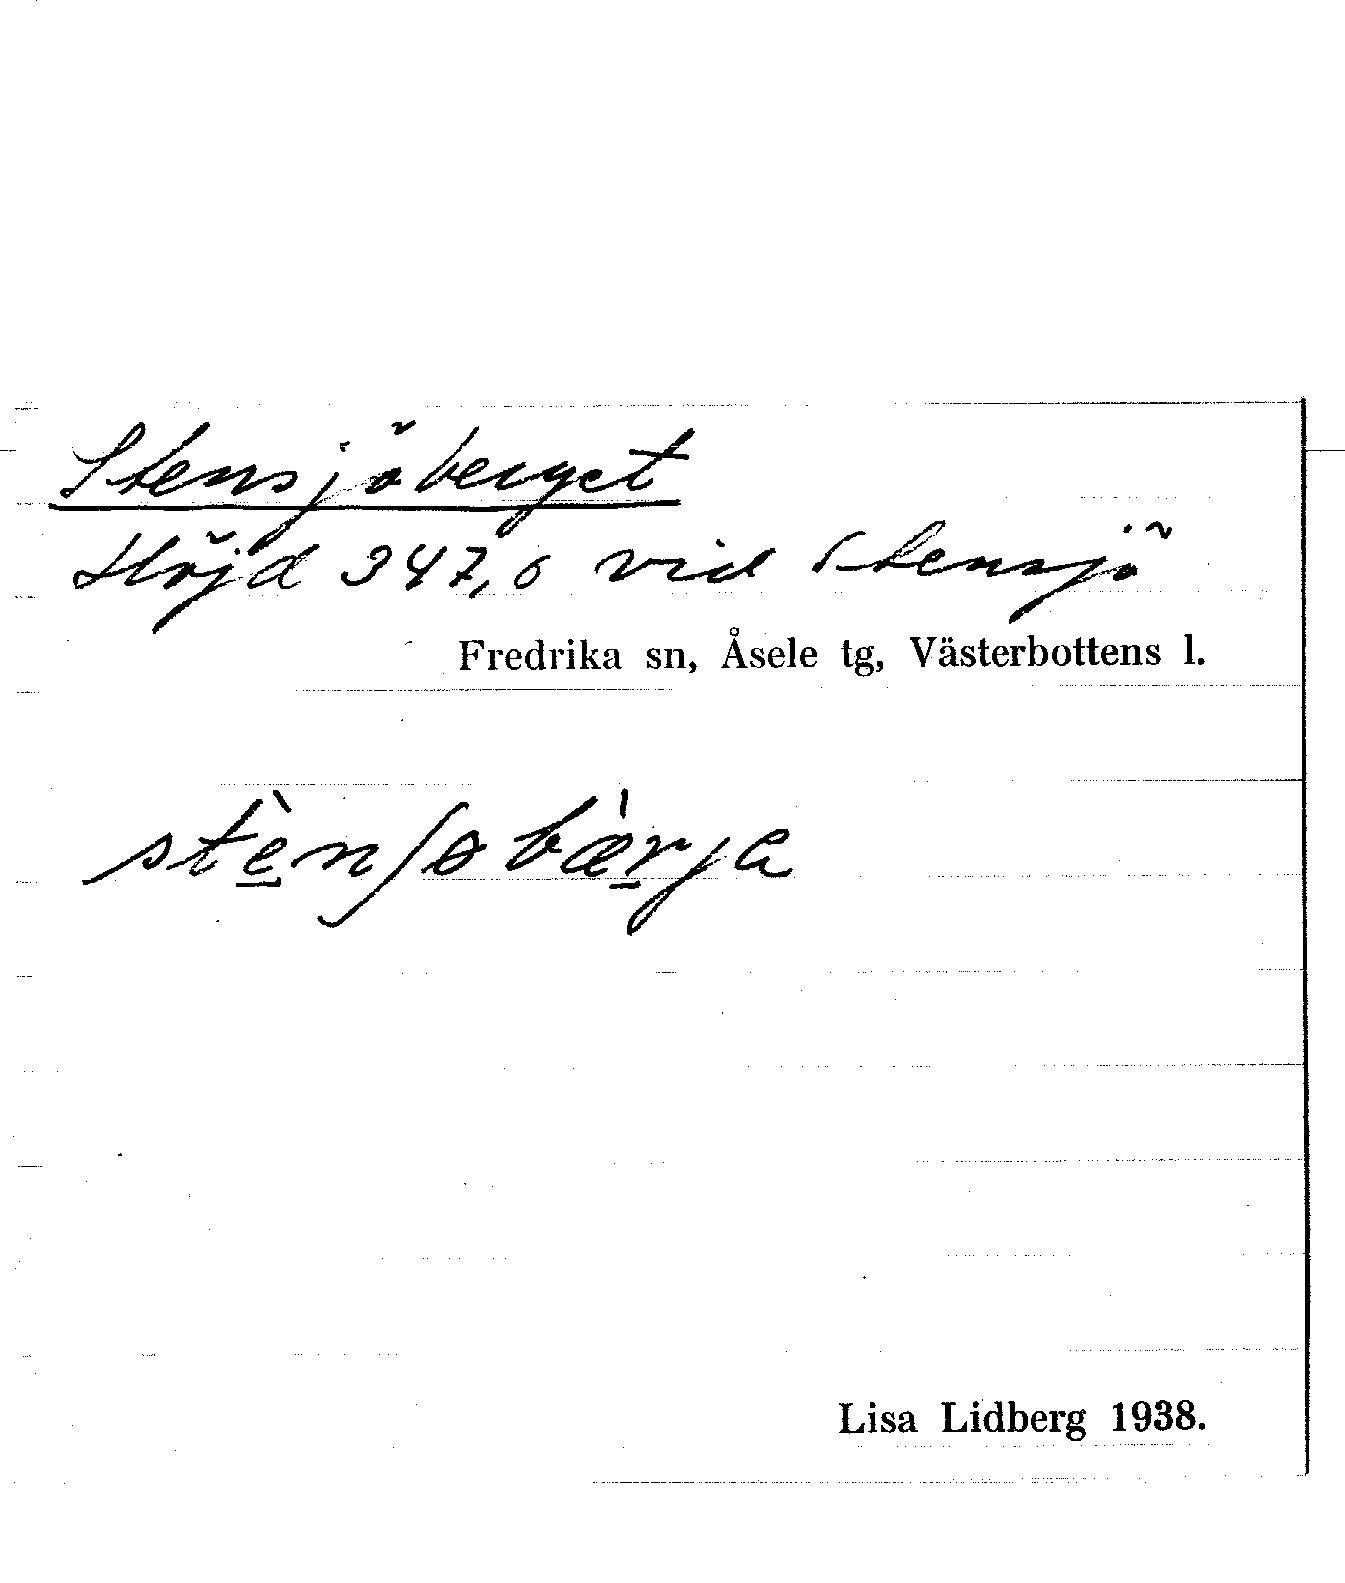 Stensjöberget
Höjd 347,6 vid Stensjö
Fredrika sn, Åsele tg, Västerbottens l.
stè̲nʃɵbæ̀r̲ja
Lisa Lidberg 1938.